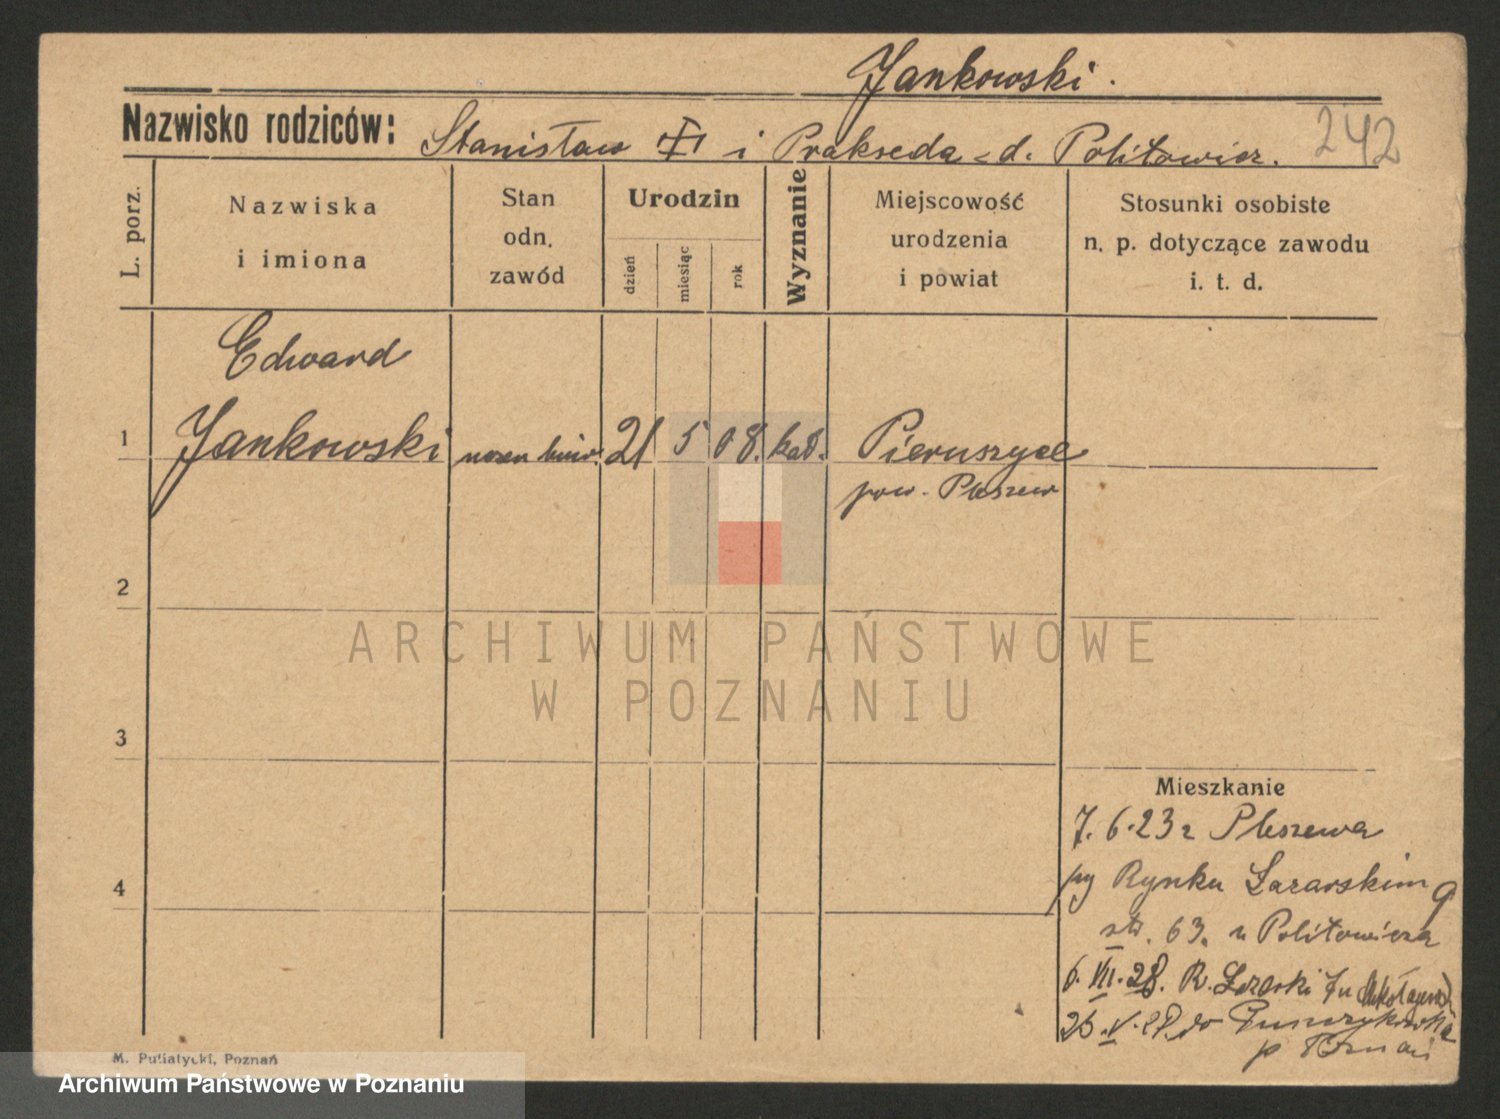 Jankowski.
242
Nazwisko rodziców: Stanisław i Prakseda d. Politowicz.
L. porz.
Nazwiska
i imiona
Stan
odn.
zawód
Urodzin
dzień
miesiąc
rok
Wyznanie
Miejscowość
urodzenia
i powiat
Stosunki osobiste
n. p. dotyczące zawodu
i. t. d.
Edward
1 Jankowski 21 5 08. kat. Pieruszyce
pow. Pleszew
2
ARCHIWUM PAŃSTWOWE
W POZNANIU
3
4
Mieszkanie
7. 6. 23 z Pleszewa
przy Rynku Łazarskim 9
str. 63. u Politowicza
6. VII. 28. R. Łazarski 7 u
25. V. 29. do Puszczykówka
p Poznań
M. Putiatycki, Poznań
Archiwum Państwowe w Poznaniu